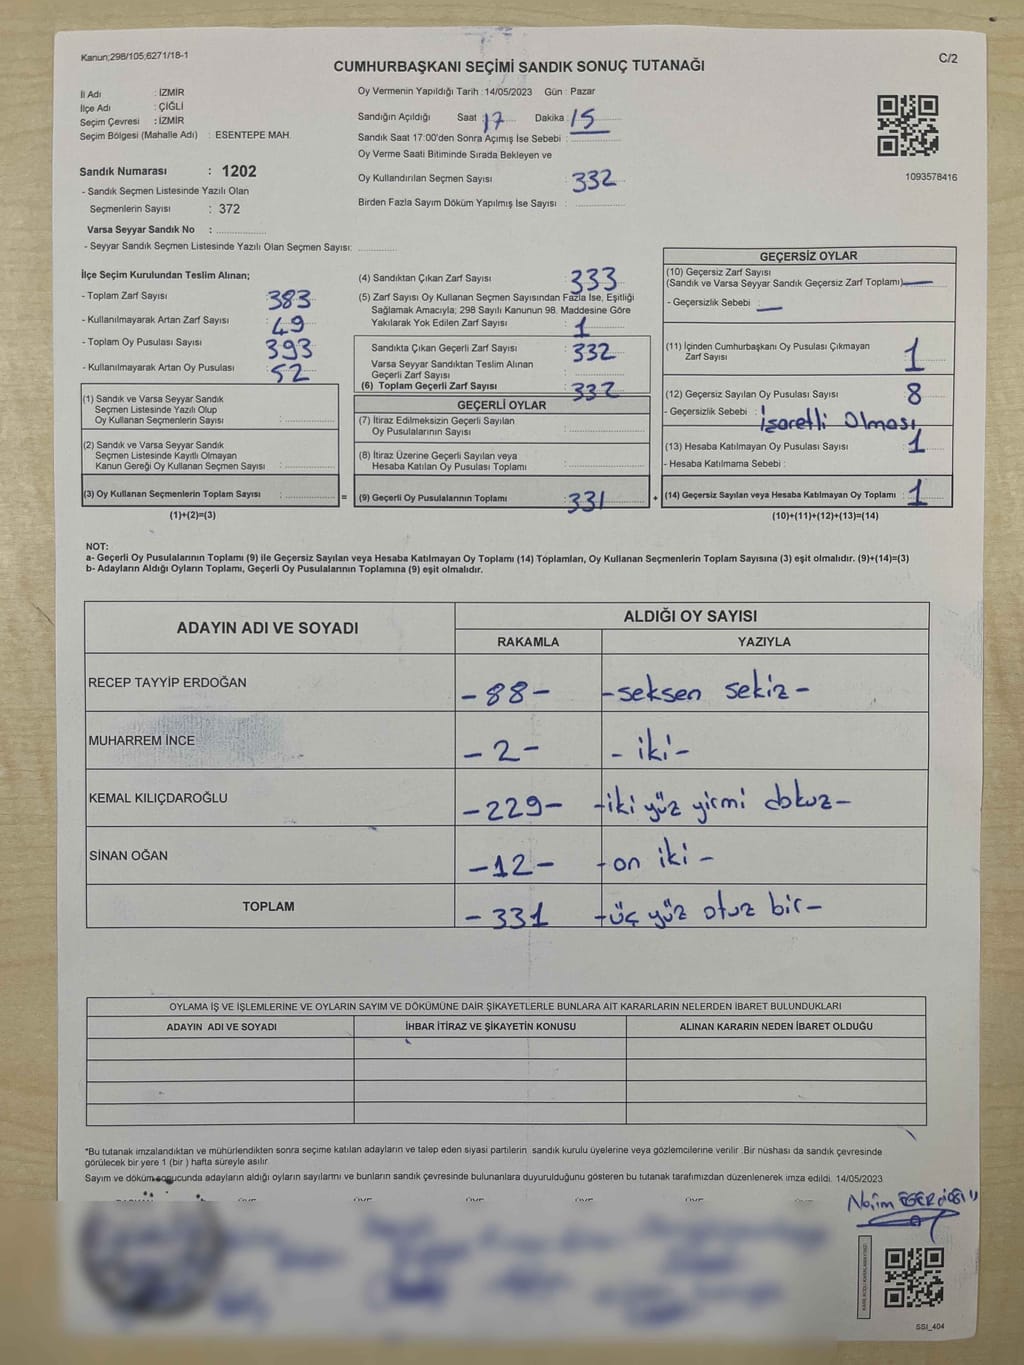 Kanun;298/105,6271/18-1
C/2
CUMHURBAŞKANI SEÇİMİ SANDIK SONUÇ TUTANAĞI
İl Adı : İZMİR
İlçe Adı : ÇİĞLİ
Seçim Çevresi : İZMİR
Seçim Bölgesi (Mahalle Adı) : ESENTEPE MAH.
Oy Vermenin Yapıldığı Tarih : 14/05/2023 Gün : Pazar
Sandığın Açıldığı Saat 17 Dakika 15
Sandık Saat 17:00'den Sonra Açımış İse Sebebi :
Oy Verme Saati Bitiminde Sırada Bekleyen ve
Oy Kullandırılan Seçmen Sayısı : 332
Birden Fazla Sayım Döküm Yapılmış İse Sayısı :
1093578416
Sandık Numarası : 1202
- Sandık Seçmen Listesinde Yazılı Olan
Seçmenlerin Sayısı : 372
Varsa Seyyar Sandık No :
- Seyyar Sandık Seçmen Listesinde Yazılı Olan Seçmen Sayısı:
İlçe Seçim Kurulundan Teslim Alınan;
- Toplam Zarf Sayısı : 383
- Kullanılmayarak Artan Zarf Sayısı : 49
- Toplam Oy Pusulası Sayısı : 393
- Kullanılmayarak Artan Oy Pusulası : 52
(1) Sandık ve Varsa Seyyar Sandık
Seçmen Listesinde Yazılı Olup
Oy Kullanan Seçmenlerin Sayısı :
(2) Sandık ve Varsa Seyyar Sandık
Seçmen Listesinde Kayıtlı Olmayan
Kanun Gereği Oy Kullanan Seçmen Sayısı :
(3) Oy Kullanan Seçmenlerin Toplam Sayısı : =
(1)+(2)=(3)
(4) Sandıktan Çıkan Zarf Sayısı : 333
(5) Zarf Sayısı Oy Kullanan Seçmen Sayısından Fazla İse, Eşitliği
Sağlamak Amacıyla; 298 Sayılı Kanunun 98. Maddesine Göre
Yakılarak Yok Edilen Zarf Sayısı : 1
Sandıkta Çıkan Geçerli Zarf Sayısı : 332
Varsa Seyyar Sandıktan Teslim Alınan
Geçerli Zarf Sayısı :
(6) Toplam Geçerli Zarf Sayısı : 332
GEÇERLİ OYLAR
(7) İtiraz Edilmeksizin Geçerli Sayılan
Oy Pusulalarının Sayısı :
(8) İtiraz Üzerine Geçerli Sayılan veya
Hesaba Katılan Oy Pusulası Toplamı :
(9) Geçerli Oy Pusulalarının Toplamı : 331 +
GEÇERSİZ OYLAR
(10) Geçersiz Zarf Sayısı
(Sandık ve Varsa Seyyar Sandık Geçersiz Zarf Toplamı) —
- Geçersizlik Sebebi : —
(11) İçinden Cumhurbaşkanı Oy Pusulası Çıkmayan
Zarf Sayısı : 1
(12) Geçersiz Sayılan Oy Pusulası Sayısı : 8
- Geçersizlik Sebebi : İşaretli Olması
(13) Hesaba Katılmayan Oy Pusulası Sayısı : 1
- Hesaba Katılmama Sebebi :
(14) Geçersiz Sayılan veya Hesaba Katılmayan Oy Toplamı : 1
(10)+(11)+(12)+(13)=(14)
NOT:
a- Geçerli Oy Pusulalarının Toplamı (9) ile Geçersiz Sayılan veya Hesaba Katılmayan Oy Toplamı (14) Toplamları, Oy Kullanan Seçmenlerin Toplam Sayısına (3) eşit olmalıdır. (9)+(14)=(3)
b- Adayların Aldığı Oyların Toplamı, Geçerli Oy Pusulalarının Toplamına (9) eşit olmalıdır.
ADAYIN ADI VE SOYADI
ALDIĞI OY SAYISI
RAKAMLA YAZIYLA
RECEP TAYYİP ERDOĞAN -88- -seksen sekiz-
MUHARREM İNCE -2- -iki-
KEMAL KILIÇDAROĞLU -229- -iki yüz yirmi dokuz-
SİNAN OĞAN -12- -on iki-
TOPLAM -331 -üç yüz otuz bir-
OYLAMA İŞ VE İŞLEMLERİNE VE OYLARIN SAYIM VE DÖKÜMÜNE DAİR ŞİKAYETLERLE BUNLARA AİT KARARLARIN NELERDEN İBARET BULUNDUKLARI
ADAYIN ADI VE SOYADI İHBAR İTİRAZ VE ŞİKAYETİN KONUSU ALINAN KARARIN NEDEN İBARET OLDUĞU
*Bu tutanak imzalandıktan ve mühürlendikten sonra seçime katılan adayların ve talep eden siyasi partilerin, sandık kurulu üyelerine veya gözlemcilerine verilir. Bir nüshası da sandık çevresinde
görülecek bir yere 1 (bir ) hafta süreyle asılır.
Sayım ve döküm sonucunda adayların aldığı oyların sayılarını ve bunların sandık çevresinde bulunanlara duyurulduğunu gösteren bu tutanak tarafımızdan düzenlenerek imza edildi. 14/05/2023
ÜYE ÜYE ÜYE ÜYE ÜYE
SSI_404